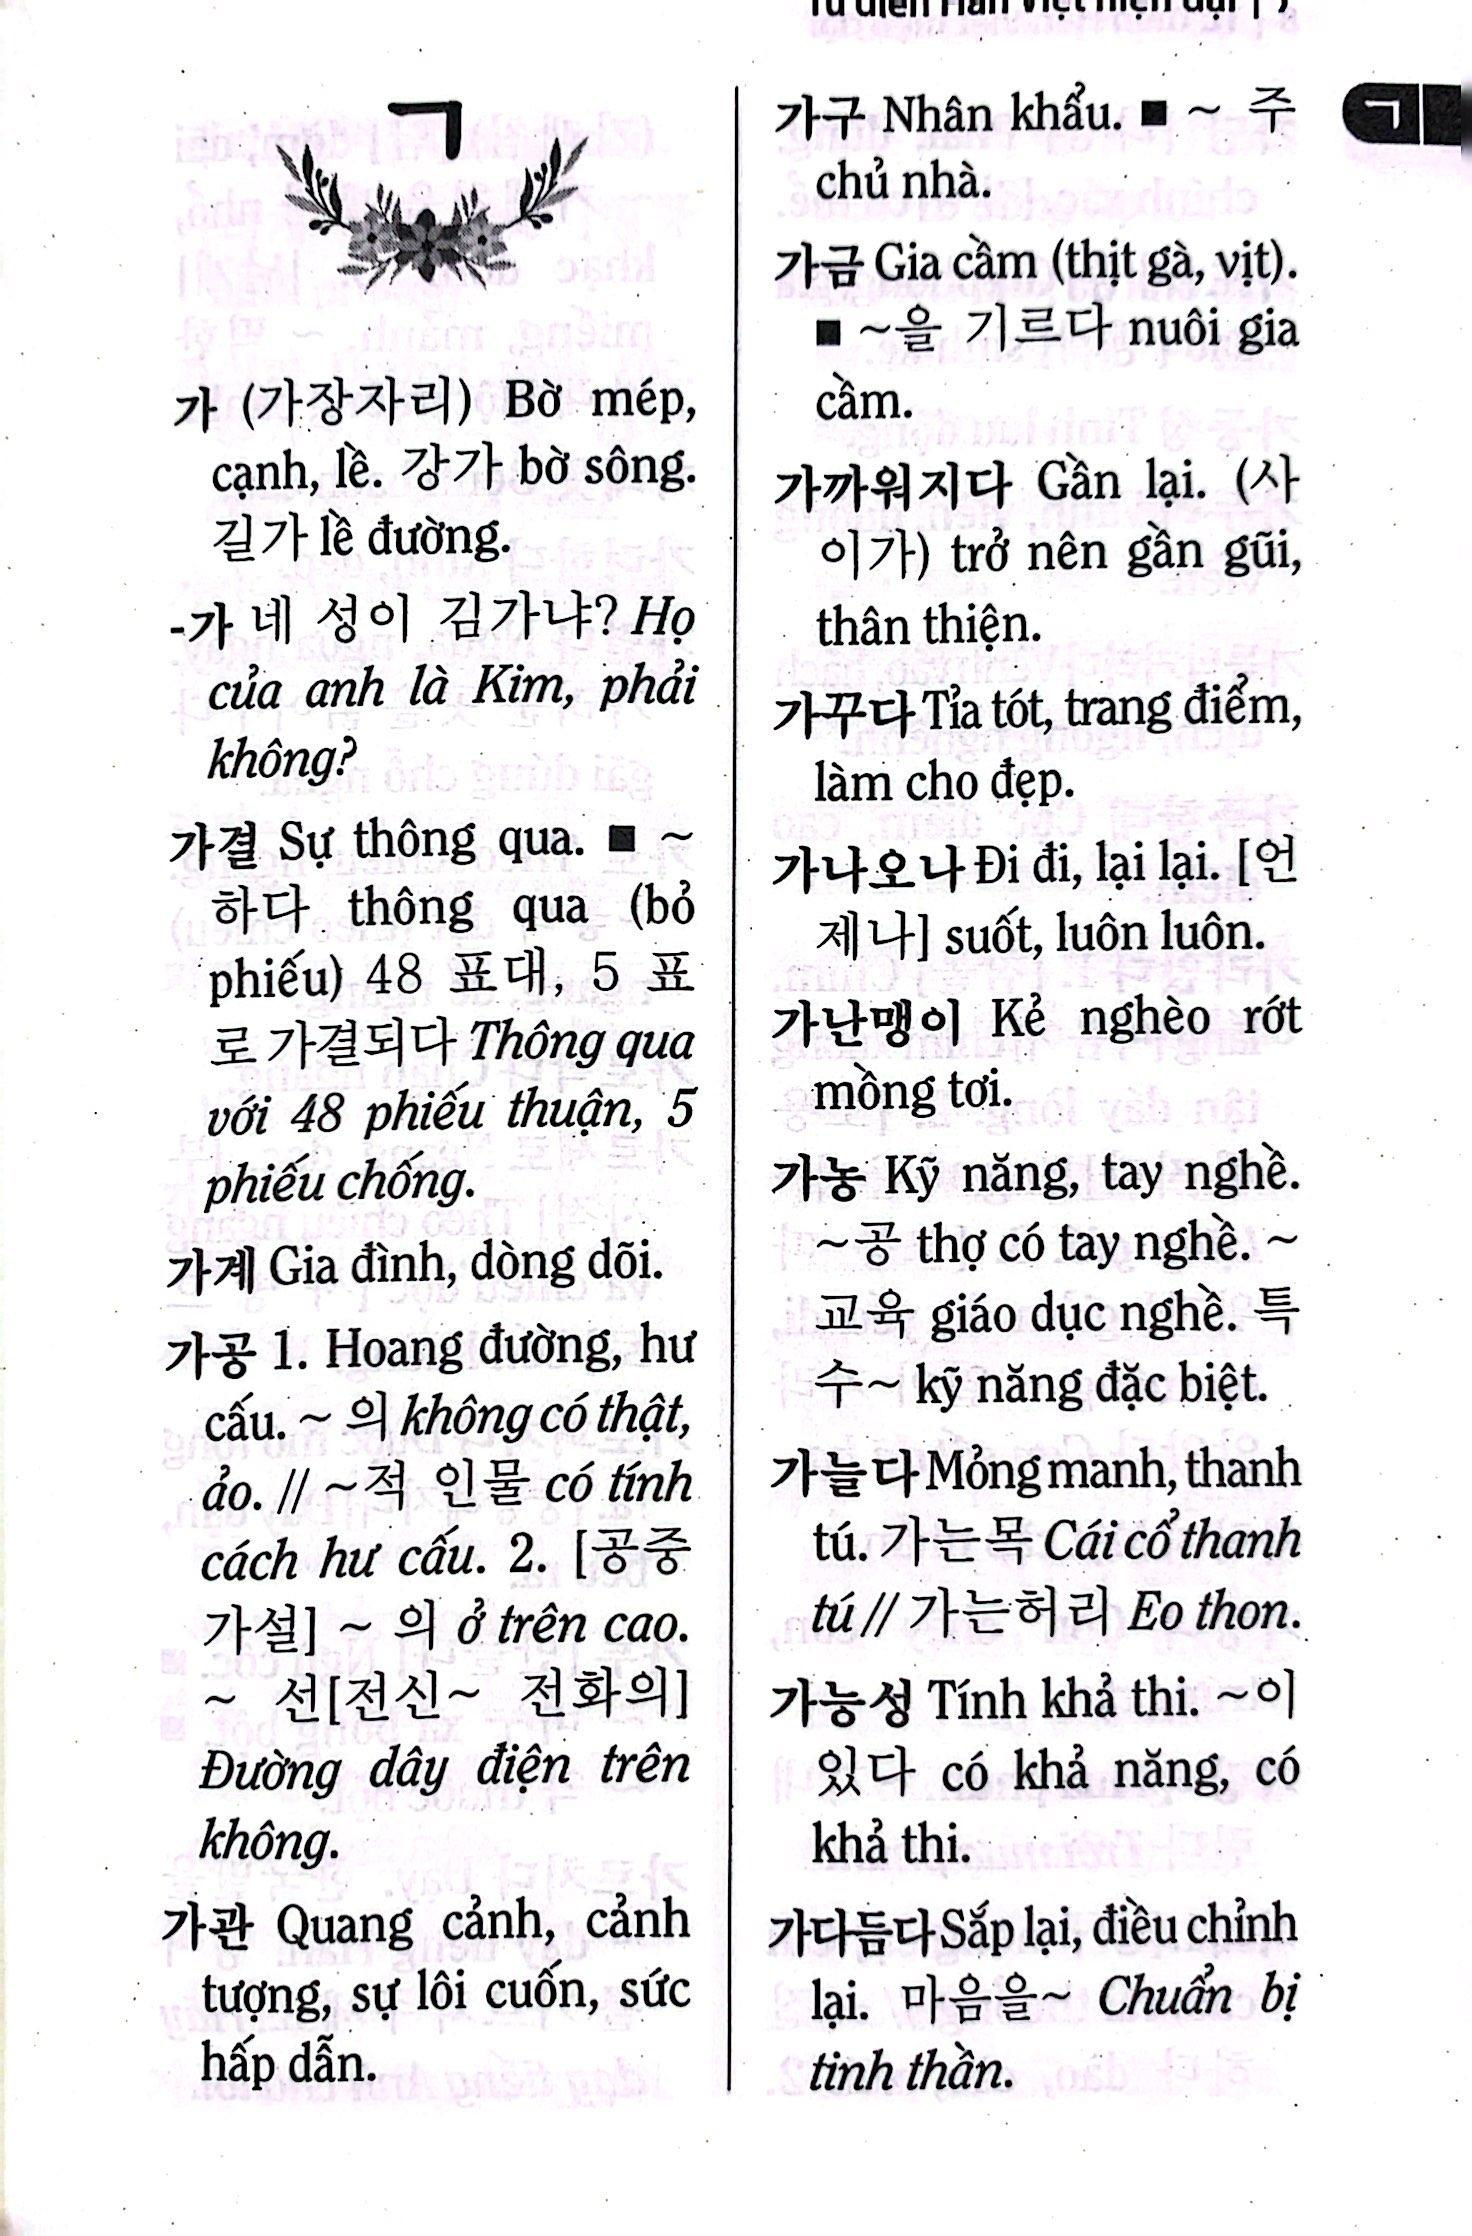 Từ điển Hàn Việt hiện đại |
ㄱ
ㄱ
가 (가장자리) Bờ mép,
cạnh, lề. 강가 bờ sông.
길가 lề đường.
-가 네 성이 김가냐? Họ
của anh là Kim, phải
không?
가결 Sự thông qua. ■ ~
하다 thông qua (bỏ
phiếu) 48 표대, 5 표
로 가결되다 Thông qua
với 48 phiếu thuận, 5
phiếu chống.
가계 Gia đình, dòng dõi.
가공 1. Hoang đường, hư
cấu. ~ 의 không có thật,
ảo. // ~적 인물 có tính
cách hư cấu. 2. [공중
가설] ~ 의 ở trên cao.
~ 선[전신~ 전화의]
Đường dây điện trên
không.
가관 Quang cảnh, cảnh
tượng, sự lôi cuốn, sức
hấp dẫn.
가구 Nhân khẩu. ■ ~ 주
chủ nhà.
가금 Gia cầm (thịt gà, vịt).
■ ~을 기르다 nuôi gia
cầm.
가까워지다 Gần lại. (사
이가) trở nên gần gũi,
thân thiện.
가꾸다 Tỉa tót, trang điểm,
làm cho đẹp.
가나오나 Đi đi, lại lại. [언
제나] suốt, luôn luôn.
가난맹이 Kẻ nghèo rớt
mồng tơi.
가농 Kỹ năng, tay nghề.
~공 thợ có tay nghề. ~
교육 giáo dục nghề. 특
수~ kỹ năng đặc biệt.
가늘다 Mỏng manh, thanh
tú. 가는목 Cái cổ thanh
tú // 가는허리 Eo thon.
가능성 Tính khả thi. ~이
있다 có khả năng, có
khả thi.
가다듬다 Sắp lại, điều chỉnh
lại. 마음을~ Chuẩn bị
tinh thần.